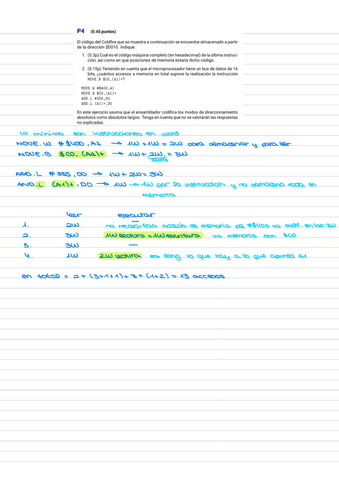 P4 (0.45 puntos)
El código del Coldfire que se muestra a continuación se encuentra almacenado a partir
de la dirección $D010. Indique:
1. (0.3p) Cuál es el código máquina completo (en hexadecimal) de la última instruc-
ción, así como en que posiciones de memoria estaría dicho código.
2. (0.15p) Teniendo en cuenta que el microprocesador tiene un bus de datos de 16
bits, ¿cuántos accesos a memoria en total supone la realización de la instrucción
MOVE.B $C0,(A1)+?
MOVE.W #$400,A1
MOVE.B $C0,(A1)+
ADD.L #385,D0
AND.L (A1)+,D0
En este ejercicio asuma que el ensamblador codifica los modos de direccionamiento
absolutos como absolutos largos. Tenga en cuenta que no se valorarán las respuestas
no explicadas.
lo mínimo son instrucciones en word
MOVE.W #$400,A1 → 1W+1W=2W para almacenar y para leer
MOVE.B $C0,(A1)+ → 1W+2W=3W
ADD.L #385,D0 → 1W+2W=3W
AND.L (A1)+,D0 → 1W → 1W por la instrucción y no almacena nada en
memoria
leer ejecutar
1. 2W no necesitas acceso de memoria pq #$400 ya está en los 2W
2. 3W 1W lectura + 1W escritura va memoria con $C0
3. 3W —
4. 1W 2W lectura en long lo que hay a lo que apunta A1
en total = 2+(3+1+1)+3+(1+2)=13 accesos